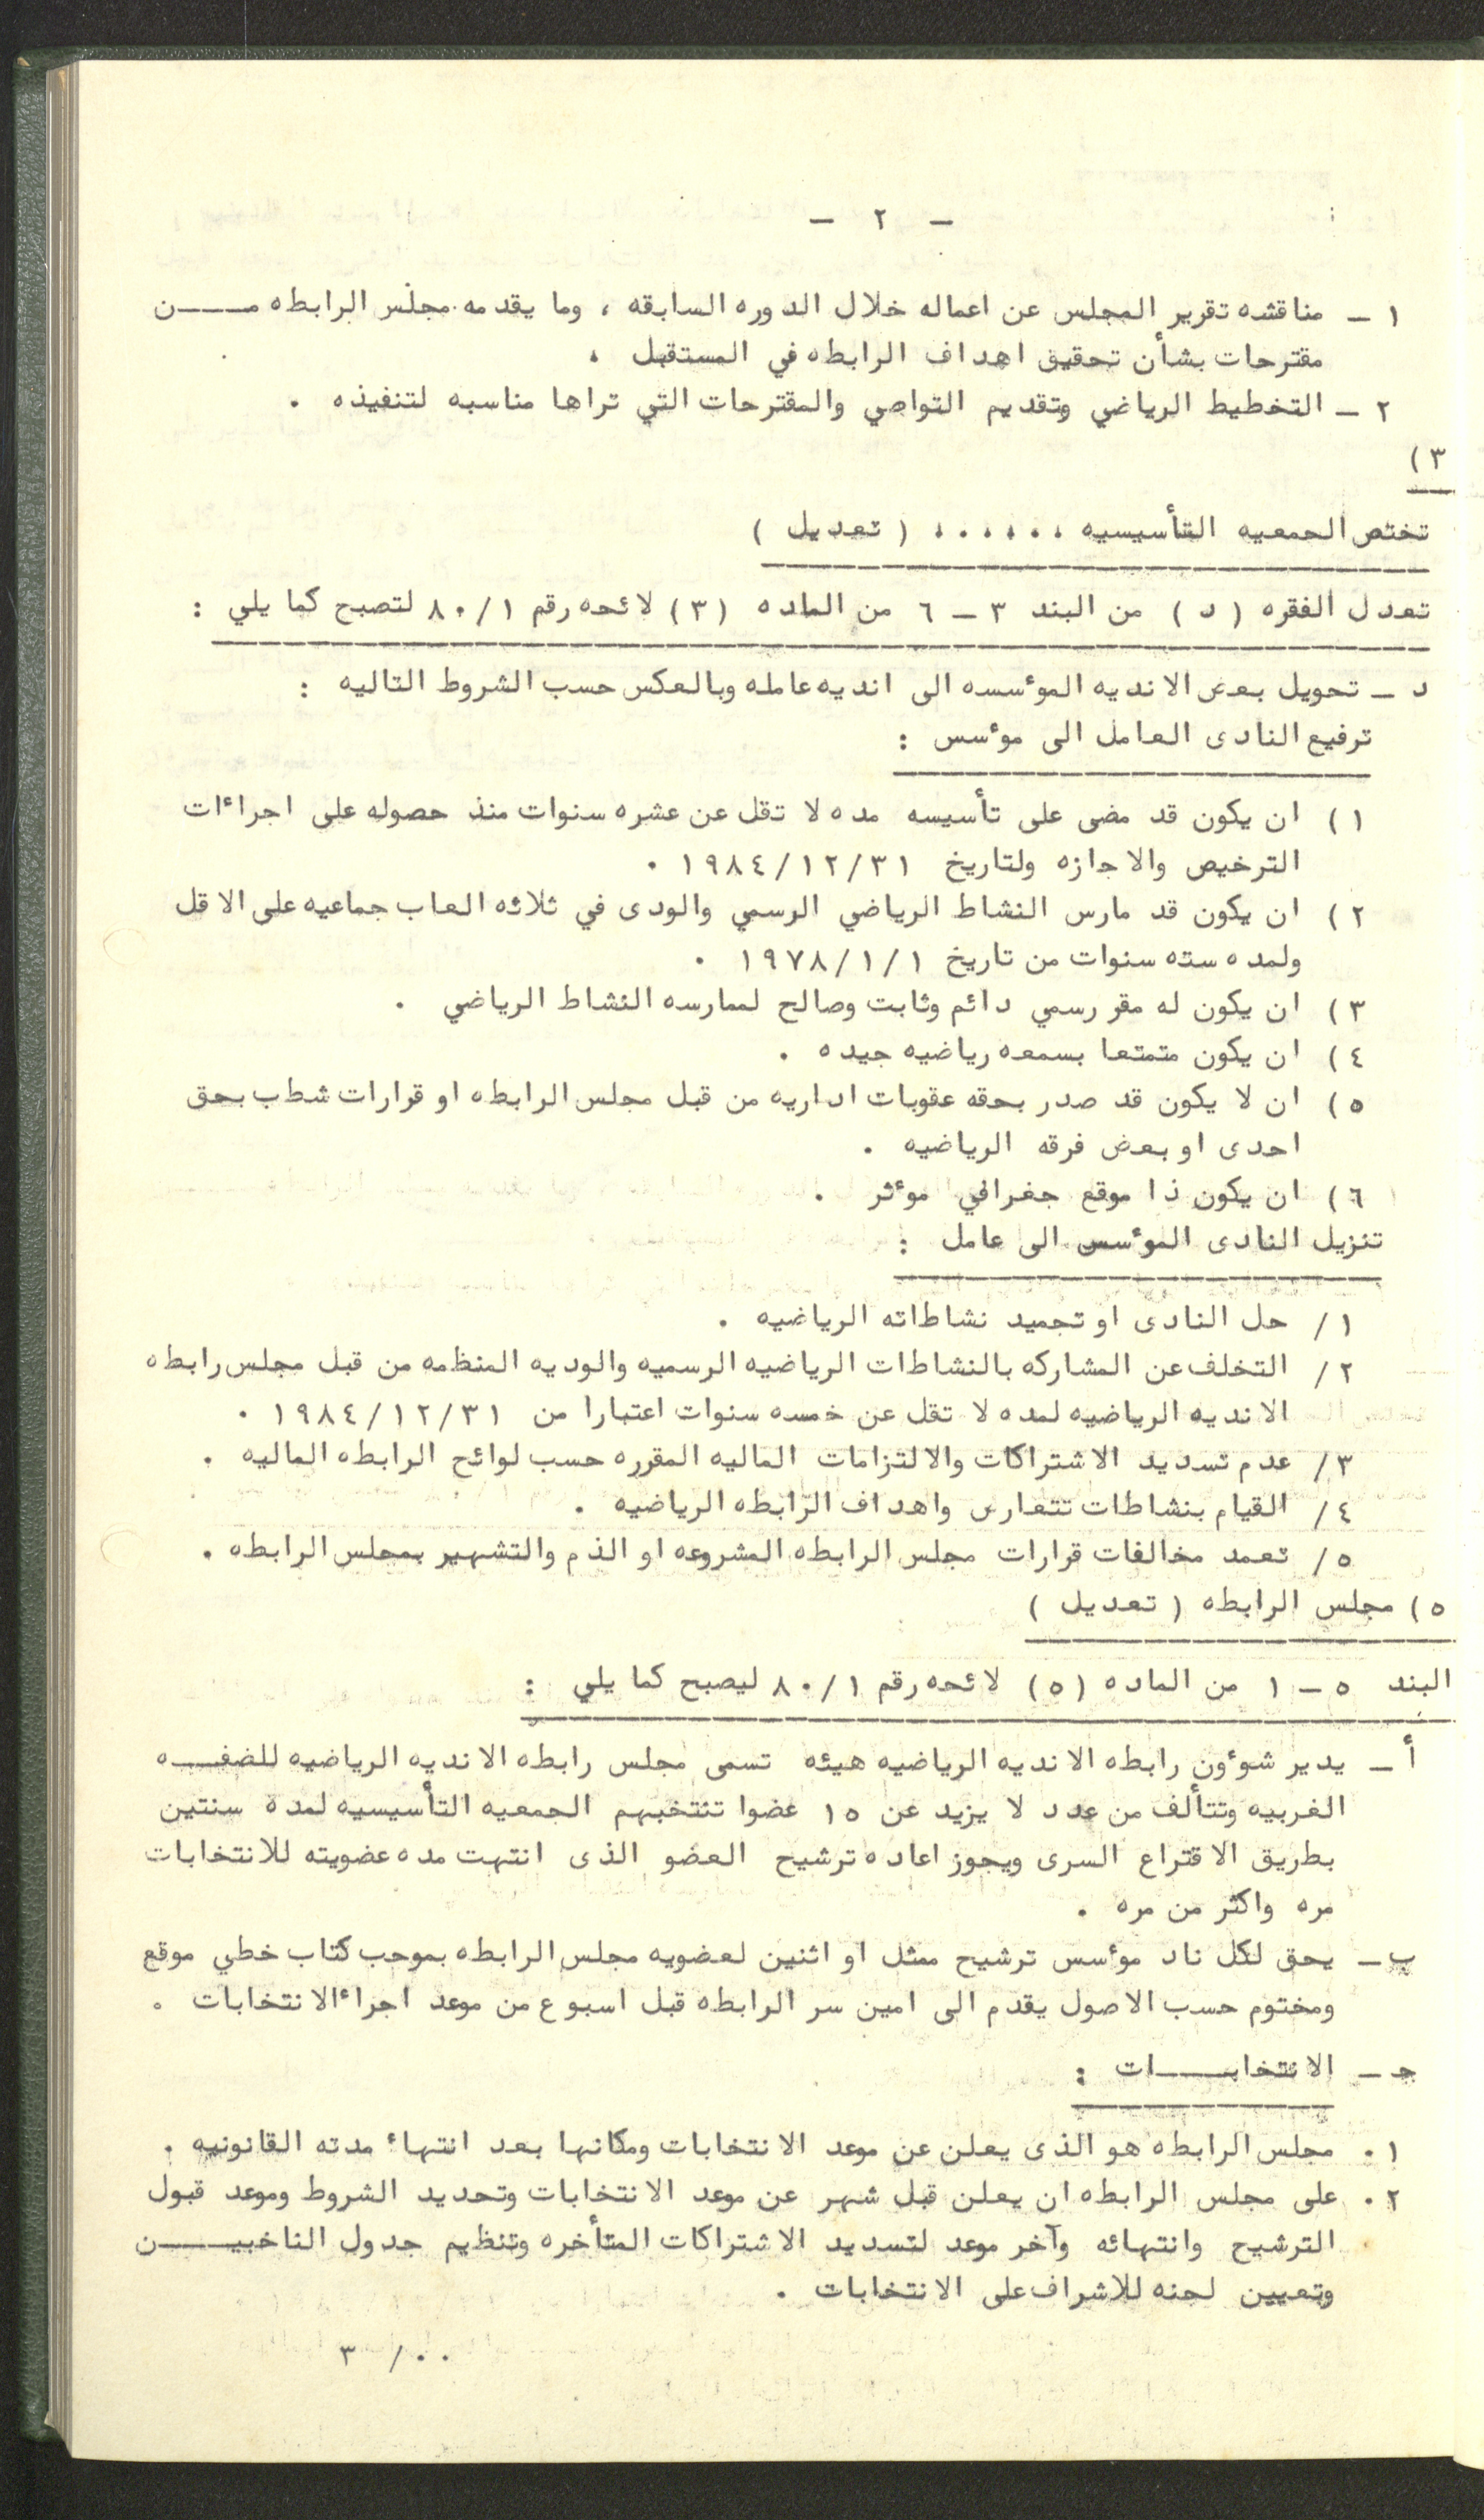 - ٢ -
١ - مناقشه تقرير المجلس عن اعماله خلال الدوره السابقه ، وما يقدمه مجلس الرابطه مـــن
مقترحات بشأن تحقيق اهداف الرابطه في المستقبل .
٢ - التخطيط الرياضي وتقديم التواصي والمقترحات التي تراها مناسبه لتنفيذه .
٣ )
تختص الجمعيه التأسيسيه ...... ( تعديل )
تعدل الفقره ( د ) من البند ٣ - ٦ من الماده (٣) لائحه رقم ٨٠/١ لتصبح كما يلي :
د - تحويل بعض الانديه المؤسسه الى انديه عامله وبالعكس حسب الشروط التاليه :
ترفيع النادى العامل الى مؤسس :
١ ) ان يكون قد مضى على تأسيسه مده لا تقل عن عشره سنوات منذ حصوله على اجراءات
الترخيص والاجازه ولتاريخ ١٩٨٤/١٢/٣١ .
٢ ) ان يكون قد مارس النشاط الرياضي الرسمي والودى في ثلاثه العاب جماعيه على الاقل
ولمده سته سنوات من تاريخ ١٩٧٨/١/١ .
٣ ) ان يكون له مقر رسمي دائم وثابت وصالح لممارسه النشاط الرياضي .
٤ ) ان يكون متمتعا بسمعه رياضيه جيده .
٥ ) ان لا يكون قد صدر بحقه عقوبات اداريه من قبل مجلس الرابطه او قرارات شطب بحق
احدى او بعض فرقه الرياضيه .
٦ ) ان يكون ذا موقع جغرافي مؤثر .
تنزيل النادى المؤسس الى عامل :
١ / حل النادى او تجميد نشاطاته الرياضيه .
٢ / التخلف عن المشاركه بالنشاطات الرياضيه الرسميه والوديه المنظمه من قبل مجلس رابطه
الانديه الرياضيه لمده لا تقل عن خمسه سنوات اعتبارا من ١٩٨٤/١٢/٣١ .
٣ / عدم تسديد الاشتراكات والالتزامات الماليه المقرره حسب لوائح الرابطه الماليه .
٤ / القيام بنشاطات تتعارض واهداف الرابطه الرياضيه .
٥ / تعمد مخالفات قرارات مجلس الرابطه المشروعه او الذم والتشهير بمجلس الرابطه .
٥ ) مجلس الرابطه ( تعديل )
البند ٥ - ١ من الماده (٥) لائحه رقم ٨٠/١ ليصبح كما يلي :
أ - يدير شؤون رابطه الانديه الرياضيه هيئه تسمى مجلس رابطه الانديه الرياضيه للضفـــه
الغربيه وتتألف من عدد لا يزيد عن ١٥ عضوا تنتخبهم الجمعيه التأسيسيه لمدة سنتين
بطريق الاقتراع السرى ويجوز اعاده ترشيح العضو الذى انتهت مده عضويته للانتخابات
مره واكثر من مره .
ب - يحق لكل ناد مؤسس ترشيح ممثل او اثنين لعضويه مجلس الرابطه بموجب كتاب خطي موقع
ومختوم حسب الاصول يقدم الى امين سر الرابطه قبل اسبوع من موعد اجراء الانتخابات .
جـ - الانتخابـــات :
١ . مجلس الرابطه هو الذى يعلن عن موعد الانتخابات ومكانها بعد انتهاء مدته القانونيه .
٢ . على مجلس الرابطه ان يعلن قبل شهر عن موعد الانتخابات وتحديد الشروط وموعد قبول
الترشيح وانتهائه وآخر موعد لتسديد الاشتراكات المتأخره وتنظيم جدول الناخبيـــن
وتعيين لجنه للاشراف على الانتخابات .
٠٠/ ٣